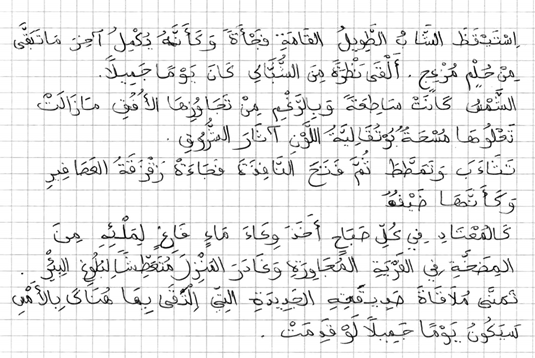 اِسْتَيْقَظَ الشَّابُ الطَّوِيلُ القَامَةِ فَجْأَةً وَكَأَنَّهُ يُكْمِلُ آخِرَ مَا تَبَقَّى
مِنْ حُلْمٍ مُزْعِجٍ. أَلْقَى نَظْرَةً مِنَ الشُّبَّاكِ كَانَ يَوْمًا جَمِيلًا.
الشَّمْسُ كَانَتْ سَاطِعَةً وَبِالرَّغْمِ مِنْ تَجَاوُزِهَا الأُفُقِ مَازَالَتْ
تَعْلُوهَا مَسْحَةٌ بُرْتُقَالِيَّةُ اللَّوْنِ آثَارَ الشُّرُوقِ.
تَثَاءَبَ وَتَمَطَّطَ ثُمَّ فَتَحَ النَّافِذَةَ فَجَاءَهُ زَقْزَقَةُ العَصَافِيرِ
وَكَأَنَّهَا ضَيْفُهُ
كَالمُعْتَادِ فِي كُلِّ صَبَاحٍ أَخَذَ وِعَاءَ مَاءٍ فَارِغٍ لِمَلْئِهِ مِنَ
المِضَخَّةِ فِي القَرْيَةِ المُجَاوِرَةِ وَغَادَرَ المَنْزِلَ مُتَعَطِّشًا لِبُلُوغِ البِئْرِ.
تَمَنَّى مُلَاقَاةَ صَدِيقَتِهِ الجَدِيدَةِ الَّتِي اِلْتَقَى بِهَا هُنَاكَ بِالأَمْسِ
سَيَكُونُ يَوْمًا جَمِيلًا لَوْ قَدِمَتْ.